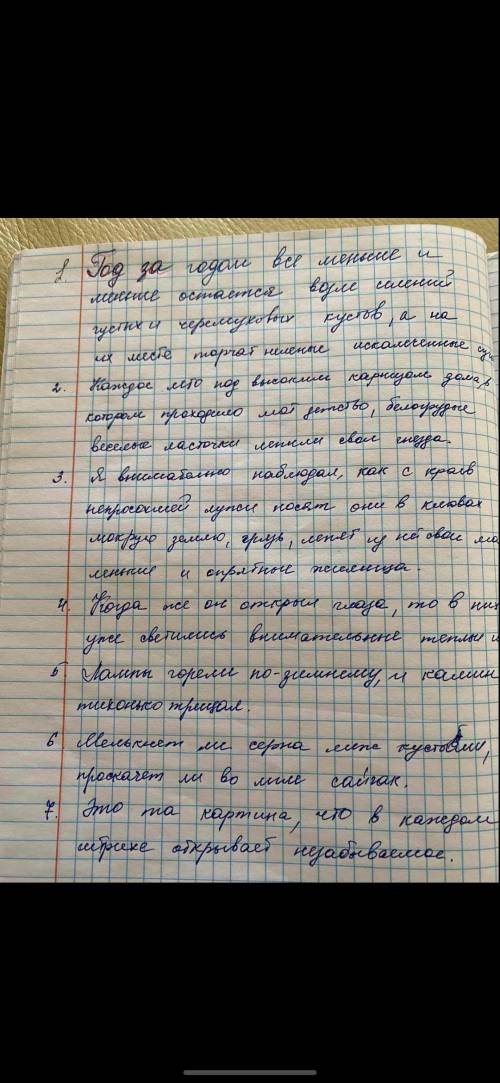 1 Год за годом все меньше и
меньше остается возле селений
густых и черемуховых кустов, а на
их месте торчат нелепые искалеченные
2. Каждое лето под высоким карнизом дома, в
котором проходило моё детство, белогрудые
веселые ласточки лепили свои гнезда.
3. Я внимательно наблюдал, как с краев
непросохшей лужи носят они в клювах
мокрую землю, грязь, лепят из неё свои ма
ленькие и опрятные жилища.
4. Когда же он открыл глаза, то в них
уже светились внимательные теплы
5 Лампы горели по-зимнему, и камин
тихонько трещал.
6 Мелькнет ли серна меж кустами,
проскачет ли во мгле сайгак.
7. Это та картина, что в каждом
штрихе открывает незабываемое.